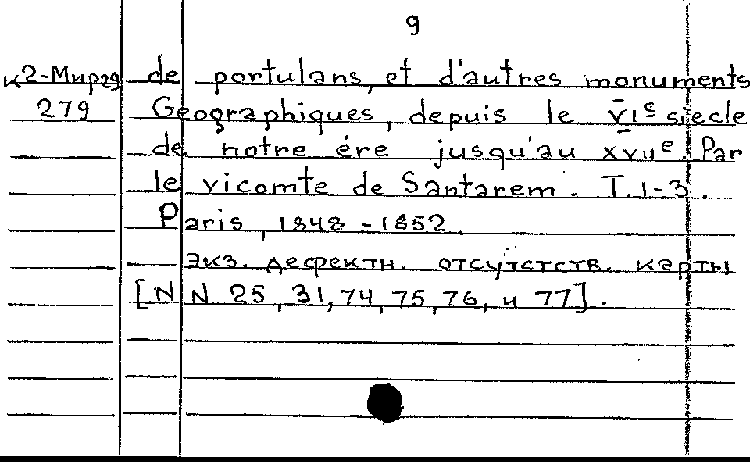 9
к2-Мир29 de portulans, et d'autres monuments
279 Géographiques, depuis le VIe siecle
de notre ére jusqu'au XVIIe. Par
le vicomte de Santarem. T.1-3.
Paris, 1842-1852.
Экз. дефектн. отсутств. карты
[NN 25, 31, 74, 75, 76, и 77].